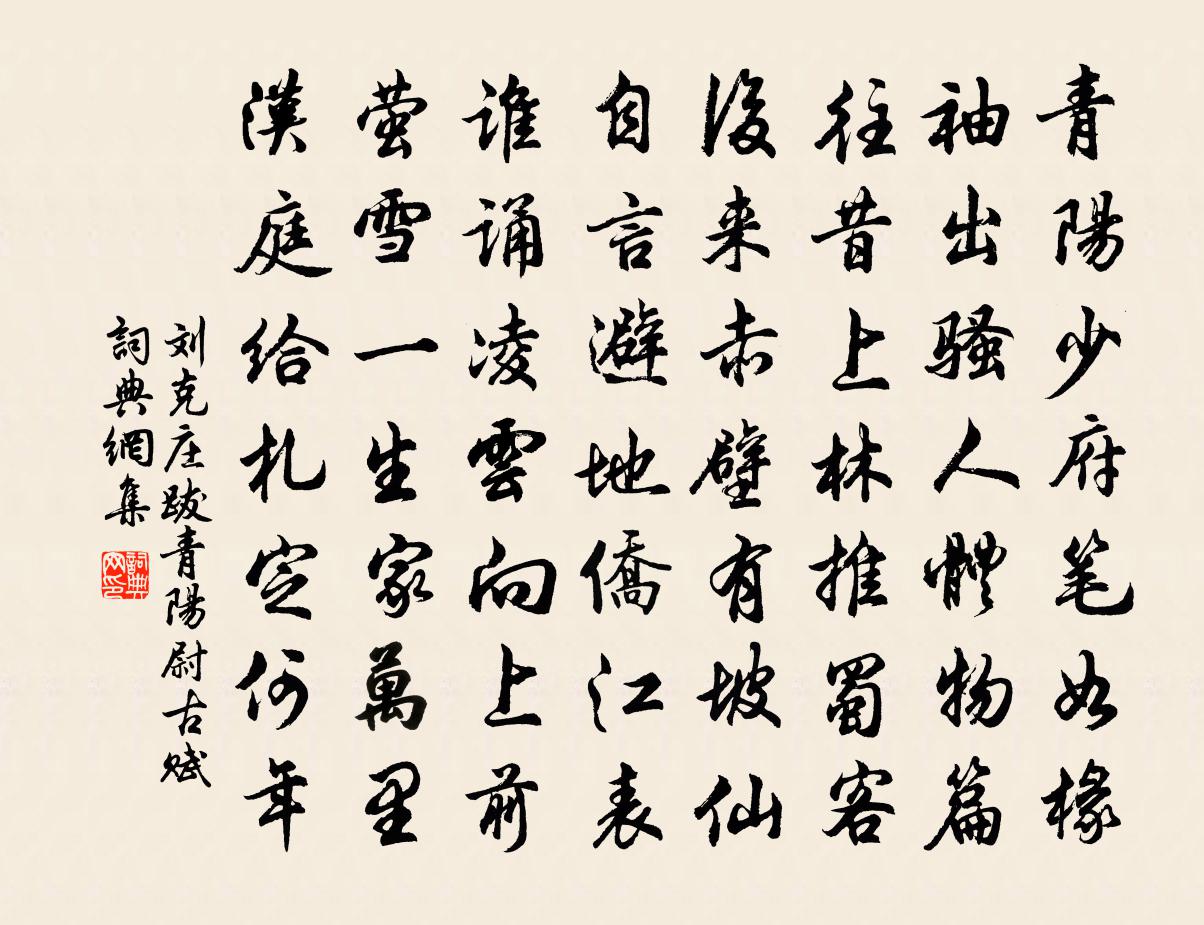 青陽少府笔如椽
袖出骚人體物篇
往昔上林推蜀客
後来赤壁有坡仙
自言避地僑江表
谁诵凌雲向上前
萤雪一生家萬里
漢庭给札定何年
刘克庄跋青陽尉古赋
詞典網集
詞典网印